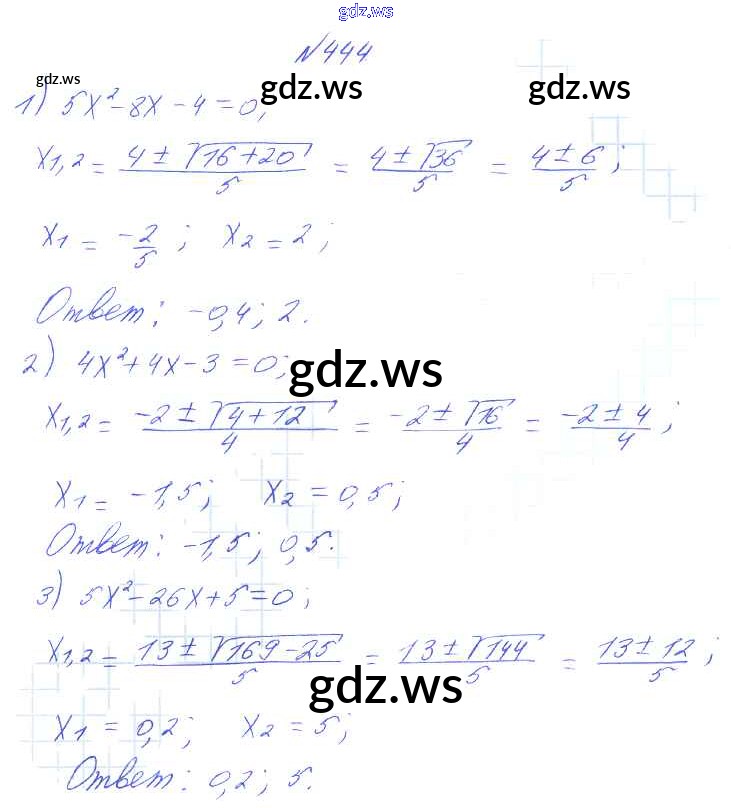 gdz.ws
N444
gdz.ws gdz.ws gdz.ws
1) 5x² - 8x - 4 = 0;
x1,2 = (4 ± √(16 + 20))/5 = (4 ± √36)/5 = (4 ± 6)/5;
x1 = -2/5; x2 = 2;
Ответ: -0,4; 2.
2) 4x² + 4x - 3 = 0; gdz.ws
x1,2 = (-2 ± √(4 + 12))/4 = (-2 ± √16)/4 = (-2 ± 4)/4;
x1 = -1,5; x2 = 0,5;
Ответ: -1,5; 0,5.
3) 5x² - 26x + 5 = 0;
x1,2 = (13 ± √(169 - 25))/5 = (13 ± √144)/5 = (13 ± 12)/5;
gdz.ws
x1 = 0,2; x2 = 5;
Ответ: 0,2; 5.